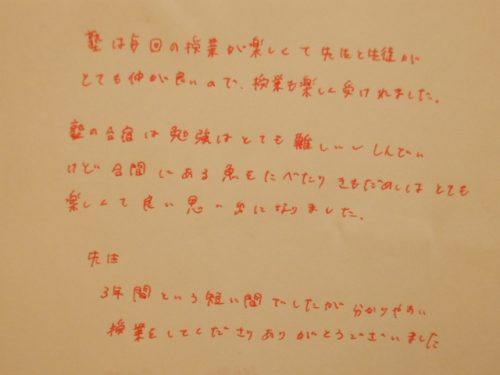 塾は毎回の授業が楽しくて先生と生徒が
とても仲が良いので、授業も楽しく受けれました。
塾の合宿は勉強はとても難しいしんどい
けど合間にある魚をたべたりきもだめしはとても
楽しくて良い思い出になりました。
先生
3年間という短い間でしたが分かりやすい
授業をしてくださりありがとうございました